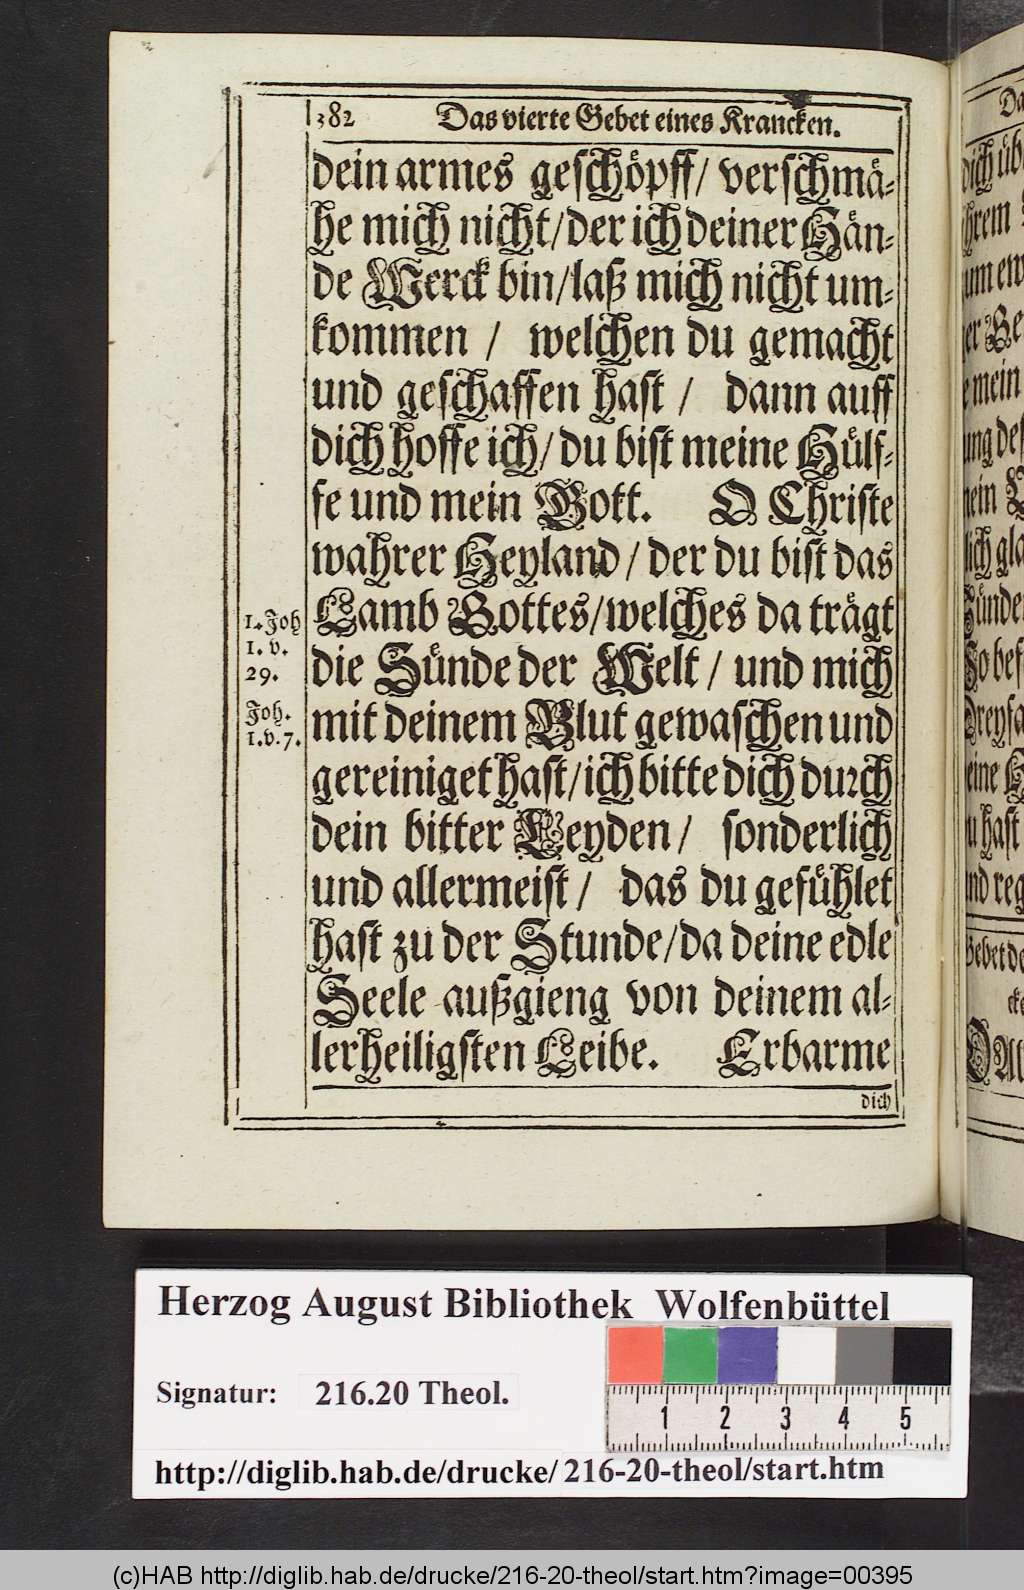 382 Das vierte Gebet eines Krancken.
dein armes geschöpff/ verschmä-
he mich nicht/der ich deiner Hän-
de Werck bin/laß mich nicht um-
kommen / welchen du gemacht
und geschaffen hast / dann auff
dich hoffe ich/ du bist meine Hülf-
fe und mein Gott. O Christe
wahrer Heyland / der du bist das
Lamb Gottes/welches da trägt
die Sünde der Welt / und mich
mit deinem Blut gewaschen und
gereiniget hast/ich bitte dich durch
dein bitter Leyden / sonderlich
und allermeist / das du gefühlet
hast zu der Stunde/da deine edle
Seele außgieng von deinem al-
lerheiligsten Leibe. Erbarme
dich
1. Joh
1. v.
29.
Joh.
1. v. 7.
Da
dich üb
ihrem
zum ew
er Ge
e mein
ung des
mein L
lich gla
Sünde
So bef
Dreyfa
eine H
u hast
nd reg
Gebet de
cke
O All
Herzog August Bibliothek Wolfenbüttel
Signatur: 216.20 Theol.
1 2 3 4 5
http://diglib.hab.de/drucke/ 216-20-theol/start.htm
(c)HAB http://diglib.hab.de/drucke/216-20-theol/start.htm?image=00395